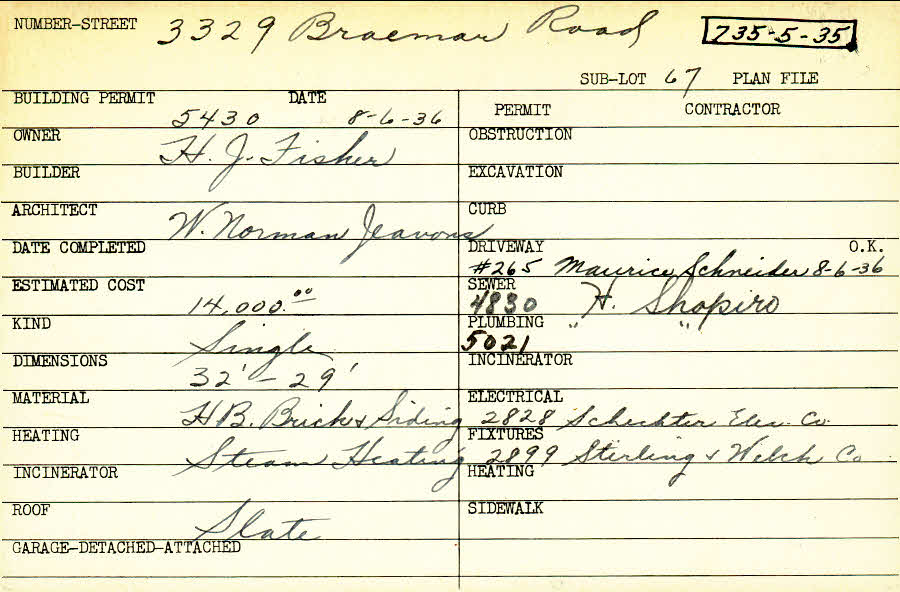 NUMBER-STREET 3329 Braemar Road 735-5-35
SUB-LOT 67 PLAN FILE
BUILDING PERMIT 5430 DATE 8-6-36
PERMIT CONTRACTOR
OWNER H. J. Fisher
OBSTRUCTION
BUILDER
EXCAVATION
ARCHITECT W. Norman Jeavons
CURB
DATE COMPLETED
DRIVEWAY O.K.
#265 Maurice Schneider 8-6-36
ESTIMATED COST 14,000.00
SEWER
4830 H. Shapiro
KIND Single
PLUMBING " "
5021
DIMENSIONS 32' - 29'
INCINERATOR
MATERIAL H B. Brick & Siding
ELECTRICAL
2828 Schechter Elec. Co.
HEATING Steam Heating
FIXTURES
2899 Sterling & Welch Co
INCINERATOR
HEATING
ROOF Slate
SIDEWALK
GARAGE-DETACHED-ATTACHED